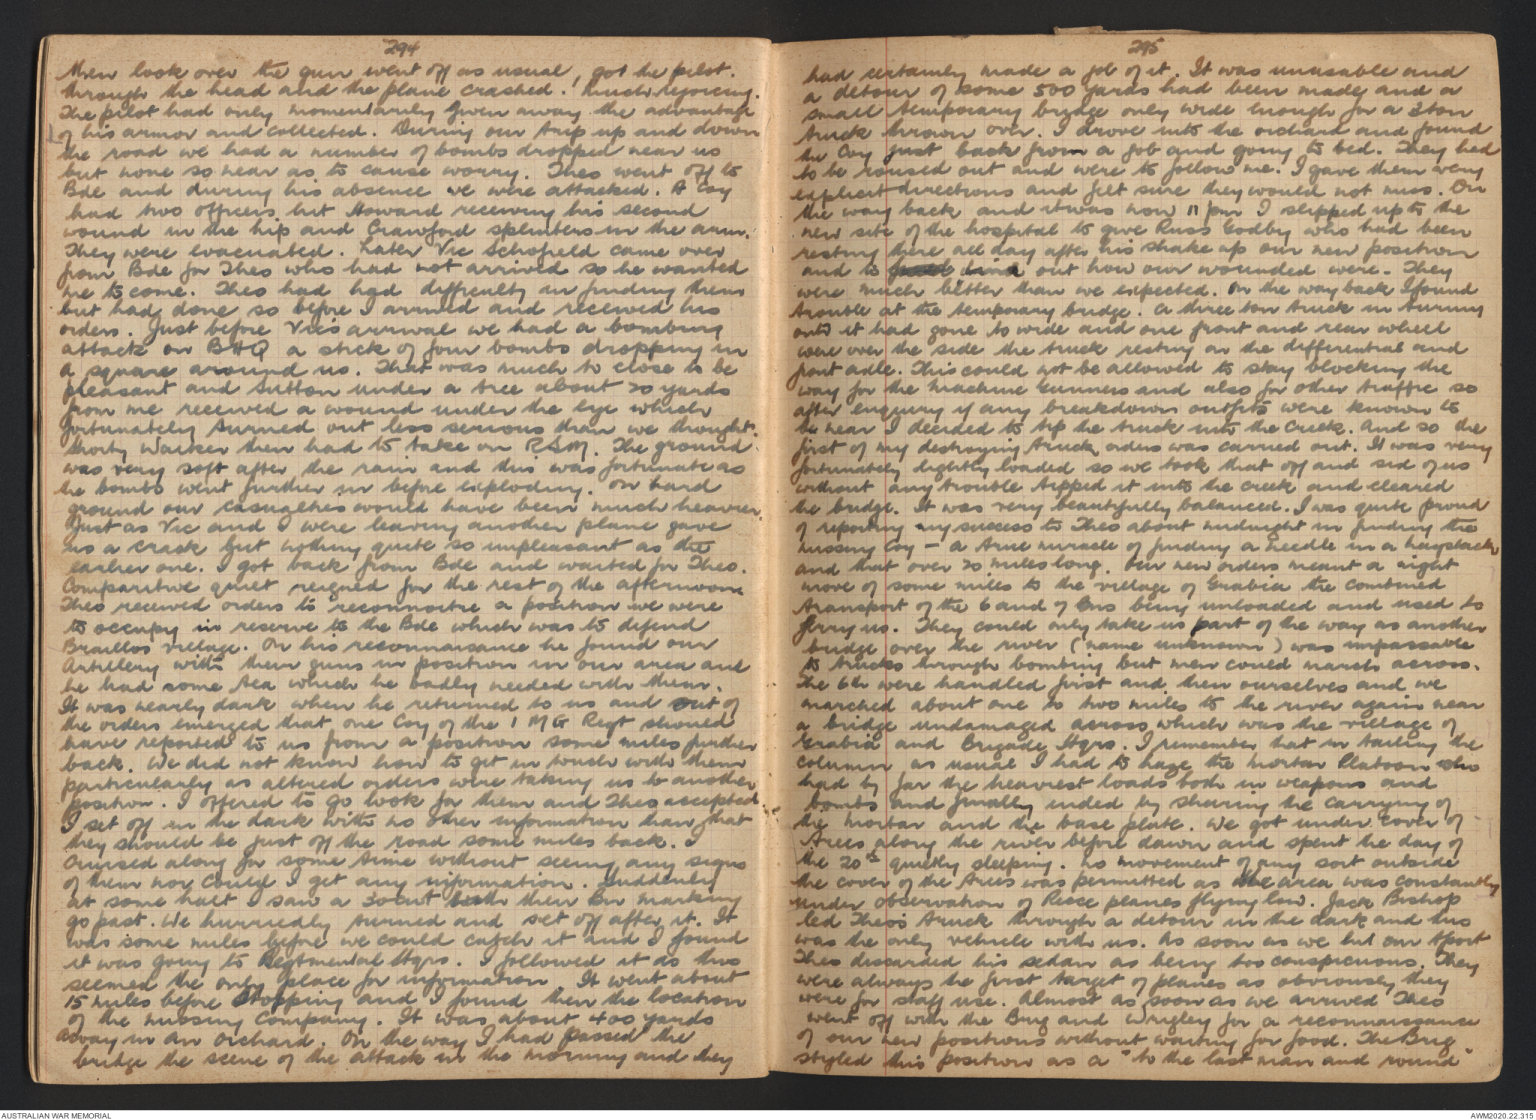 294
then look over the gun went off as usual, got the pilot.
through the head and the plane crashed. Much rejoicing.
The pilot had only momentarily given away the advantage
of his armor and collected. During our trip up and down
the road we had a number of bombs dropped near us
but none so near as to cause worry. Theo went off to
Bde and during his absence we were attacked. A Coy
had two officers hit Howard receiving his second
wound in the hip and Crawford splinters in the arm.
They were evacuated. Later Vic Schofield came over
from Bde for Theo who had not arrived so he wanted
me to come. Theo had had difficulty in finding them
but had done so before I arrived and received his
orders. Just before Vic's arrival we had a bombing
attack on BHQ a stick of four bombs dropping in
a square around us. That was much to close to be
pleasant and Sutton under a tree about 20 yards
from me received a wound under the eye which
fortunately turned out less serious than we thought.
Shorty Walker then had to take on RSM. The ground
was very soft after the rain and this was fortunate as
the bombs went further in before exploding. On hard
ground our casualties would have been much heavier.
Just as Vic and I were leaving another plane gave
us a crack but nothing quite so unpleasant as the
earlier one. I got back from Bde and waited for Theo.
Comparitive quiet reigned for the rest of the afternoon.
Theo received orders to reconnoitre a position we were
to occupy in reserve to the Bde which was to defend
Brallos village. On his reconnaisance he found our
Artillery with their guns in position in our area and
he had some tea which he badly needed with them.
It was nearly dark when he returned to us and out of
the orders emerged that one Coy of the 1 MG Regt should
have reported to us from a position some miles further
back. We did not know how to get in touch with them
particularly as altered orders were taking us to another
position. I offered to go look for them and Theo accepted
I set off in the dark with no other information than that
they should be just off the road some miles back. I
cruised along for some time without seeing any signs
of them nor could I get any information. Suddenly
at some halt I saw a 30cwt with their Bn marking
go past. We hurriedly turned and set off after it. It
was some miles before we could catch it and I found
it was going to Regtmental Hqrs. I followed it as this
seemed the only place for information. It went about
15 miles before stopping and I found then the location
of the missing Company. It was about 400 yards
away in an orchard. On the way I had passed the
bridge the scene of the attack in the morning and they
295
had certainly made a job of it. It was unusable and
a detour of some 500 yards had been made and a
small temporary bridge only wide enough for a 3 ton
truck thrown over. I drove into the orchard and found
the Coy just back from a job and going to bed. They had
to be roused out and were to follow me. I gave them very
explicit directions and felt sure they would not miss. On
the way back and it was now 11 pm I slipped up to the
new site of the hospital to give Russ Godby who had been
resting there all day after his shake up our new position
and to find out how our wounded were. They
were much better than we expected. On the way back I found
trouble at the temporary bridge. A three ton truck in turning
onto it had gone to wide and one front and rear wheel
were over the side the truck resting on the differential and
front adle. This could not be allowed to stay blocking the
way for the machine gunners and also for other traffic so
after enquiry if any breakdown outfits were known to
be near I decided to tip the truck into the creek. And so the
first of my destroying truck orders was carried out. It was very
fortunately lightly loaded so we took that off and six of us
without any trouble tipped it into the creek and cleared
the bridge. It was very beautifully balanced. I was quite proud
of reporting my success to Theo about midnight in finding the
missing Coy - a true miracle of finding a needle in a haystack
and that over 20 miles long. Our new orders meant a night
move of some miles to the village of Grabia the combined
transport of the 6 and 7 Bns being unloaded and used to
ferry us. They could only take us part of the way as another
bridge over the river (name unknown) was impassable
to trucks through bombing but men could march across.
The 6th were handled first and then ourselves and we
marched about one to two miles to the river again near
a bridge undamaged across which was the village of
Grabia and Brigade Hqrs. I remember that in tailing the
column as usual I had to haze the Mortar Platoon who
had by far the heaviest loads both in weapons and
bombs and finally ended by sharing the carrying of
the mortar and the base plate. We got under cover of
trees along the river before dawn and spent the day of
the 20th quietly sleeping. No movement of any sort outside
the cover of the trees was permitted as the area was constantly
under observation of Recce planes flying low. Jack Bishop
led Theo's truck through a detour in the dark and this
was the only vehicle with us. As soon as we hit our sport
Theo discarded his sedan as being too conspicuous. They
were always the first target of planes as obviously they
were for staff use. Almost as soon as we arrived Theo
went off with the Brig and Wrigley for a reconnaissance
of our new positions without waiting for food. The Brig
styled this position as a "to the last man and round"
AUSTRALIAN WAR MEMORIAL
AWM2020.22.315